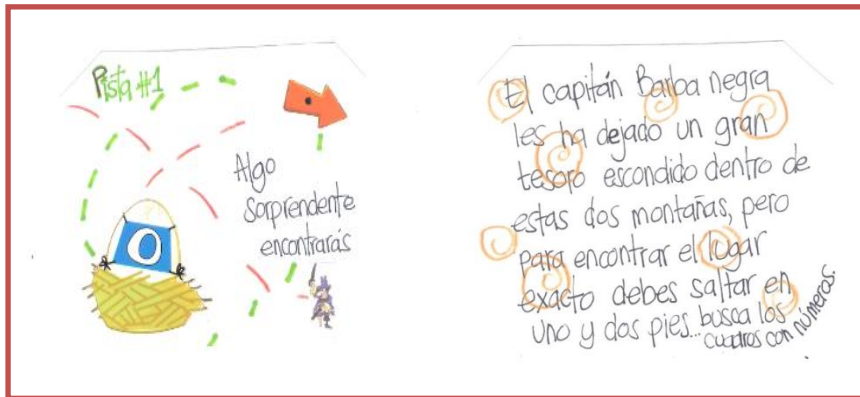 Pista #1
Algo
sorprendente
encontrarás
O
El capitán Barba negra
les ha dejado un gran
tesoro escondido dentro de
estas dos montañas, pero
para encontrar el lugar
exacto debes saltar en
uno y dos pies... busca los
cuadros con números.